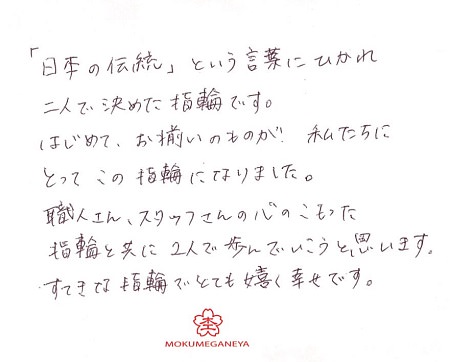 「日本の伝統」という言葉にひかれ
二人で決めた指輪です。
はじめて、お揃いのものが 私たちに
とって この指輪になりました。
職人さん、スタッフさんの心のこもった
指輪と共に 2人で歩んでいこうと思います。
すてきな指輪でとても嬉しく幸せです。
杢
MOKUMEGANEYA